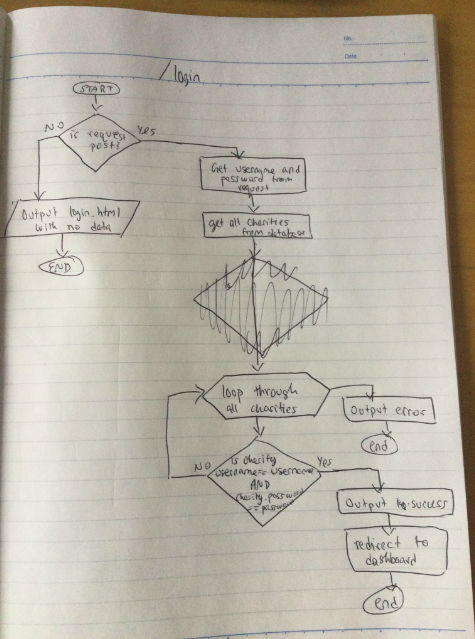 No.
Date
/login
START
is request
post?
NO
Yes
Output login.html
with no data
END
Get username and
password from
request
get all charities
from database
loop through
all charities
Output error
end
is charity
username == username
AND
charity.password
== password
NO
Yes
Output success
redirect to
dashboard
end